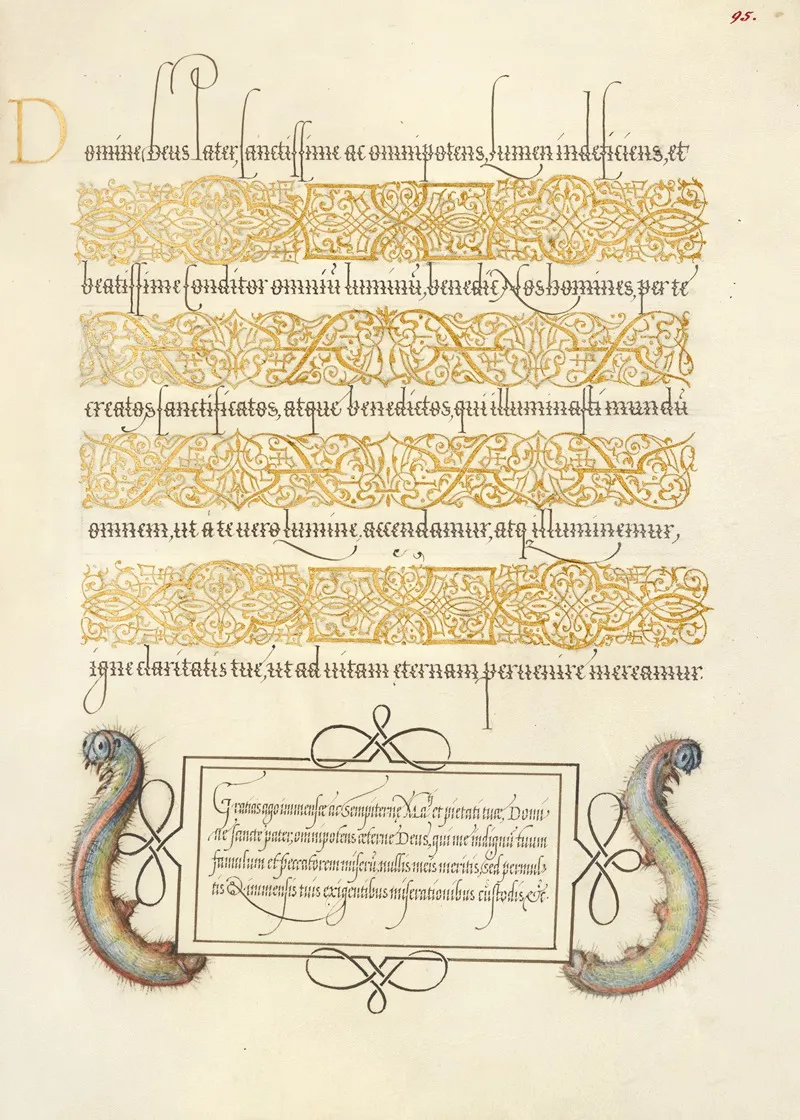 95.
Domine Deus Pater, sanctissime ac omnipotens, lumen indeficiens, et
beatissime Conditor omniū luminū, benedic Nos homines, per te
creatos sanctificatos, atque benedictos, qui illuminasti mundū
omnem, ut à te uero lumine, accendamur, atq illuminemur,
igne claritatis tuę, ut ad uitam eternam peruenire mereamur.
Gratias ago immensę ac sempiternę Ma.ti et pietati tuæ, Domi-
ne sancte pater, omnipotens æterne Deus, qui me indignū tuum
famulum et peccatorem miserū, nullis meis meritis, sed permul-
tis & immensis tuis exigentibus miserationibus custodis, &c.